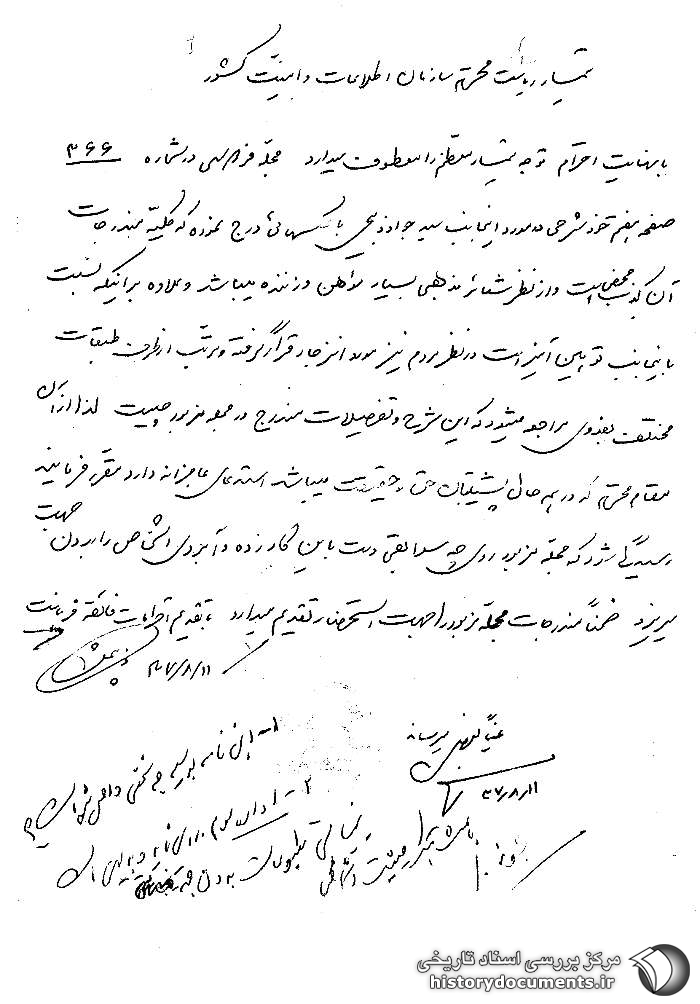 تیمسار ریاست محترم سازمان اطلاعات و امنیت کشور
با نهایت احترام توجه تیمسار معظم را معطوف میدارد مجله فردوسی در شماره ۳۶۶
صفحه پنجم خود شرحی در مورد اینجانب سید جواد ذبیحی با عکسهائی درج نموده که کلیه مندرجات
آن کذب محض است و از نظر شعائر مذهبی بسیار موهن و زننده میباشد و علاوه بر اینکه نسبت
باینجانب توهین آمیز است در نظر مردم نیز مورد انزجار قرار گرفته و مرتب از طرف طبقات
مختلف بفدوی مراجعه میشود که این شرح و تفصیلات مندرج در مجله مزبور چیست لذا از آن
مقام محترم که در همه حال پشتیبان حق و حقیقت میباشد استدعای عاجزانه دارد مقرر فرمایند
رسیدگی شود که مجله مزبور روی چه سوابقی دست باین کار زده و آبروی اشخاص را بدون جهت
میریزد ضمناً مندرجات مجله مزبور را جهت استحضار تقدیم میدارد با تقدیم احترامات فائقه قربانت
۳۷/۸/۱۱
عیناً بعرض میرساند
۳۷/۸/۱۱
۱- این نامه بوسیله چه شخصی داده شده است
۲- اداره سوم
مرکز بررسی اسناد تاریخی
historydocuments.ir